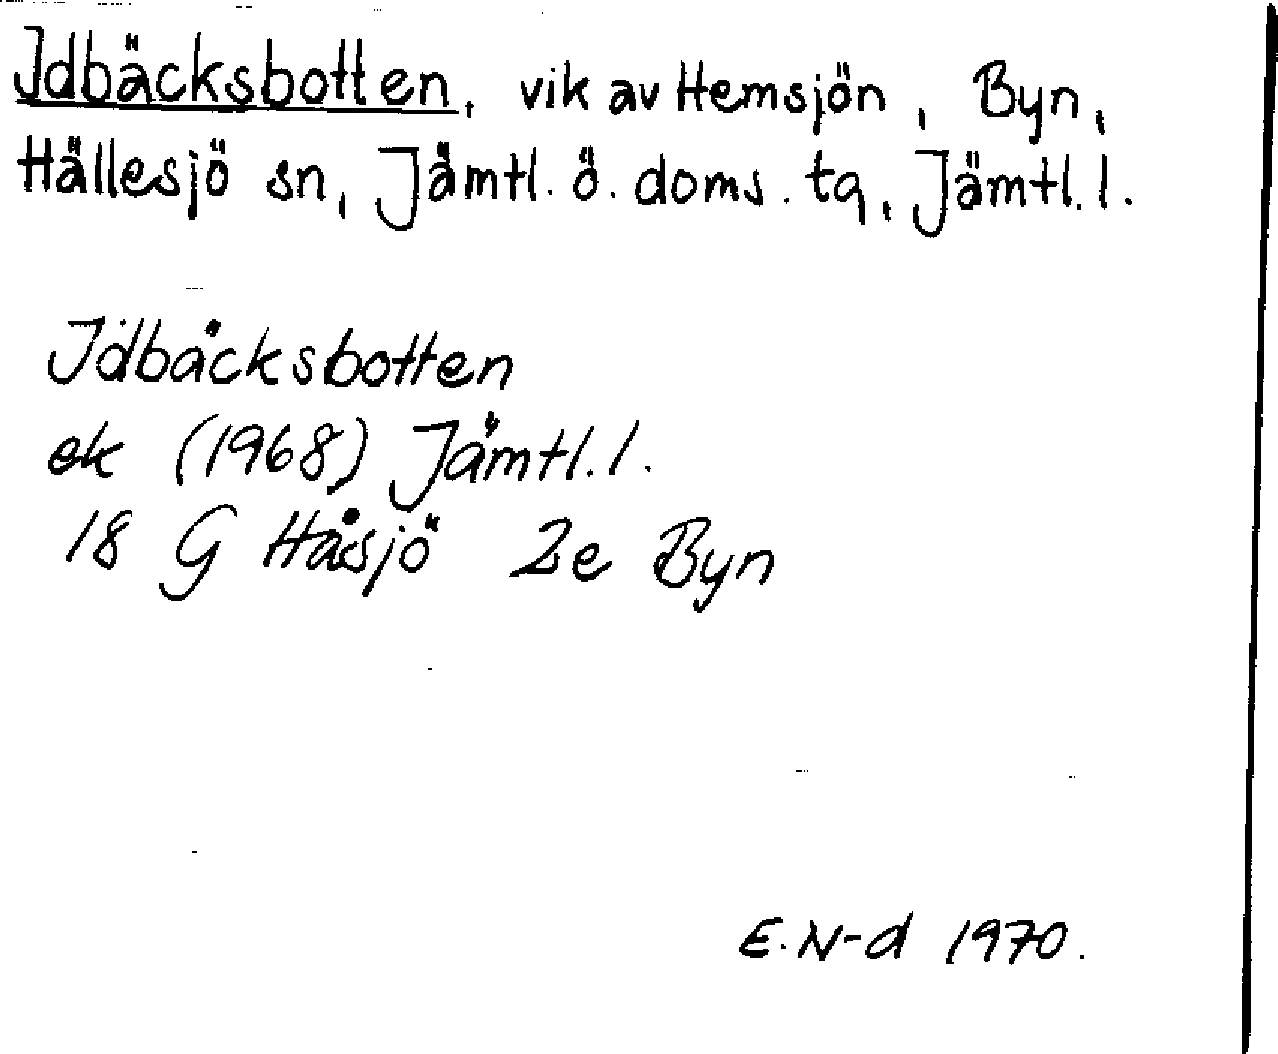 Idbäcksbotten, vik av Hemsjön, Byn,
Hällesjö sn, Jämtl. ö. doms. tg, Jämtl. l.
Idbäcksbotten
ek (1968) Jämtl. l.
18 G Håsjö 2e Byn
E. N-d 1970.